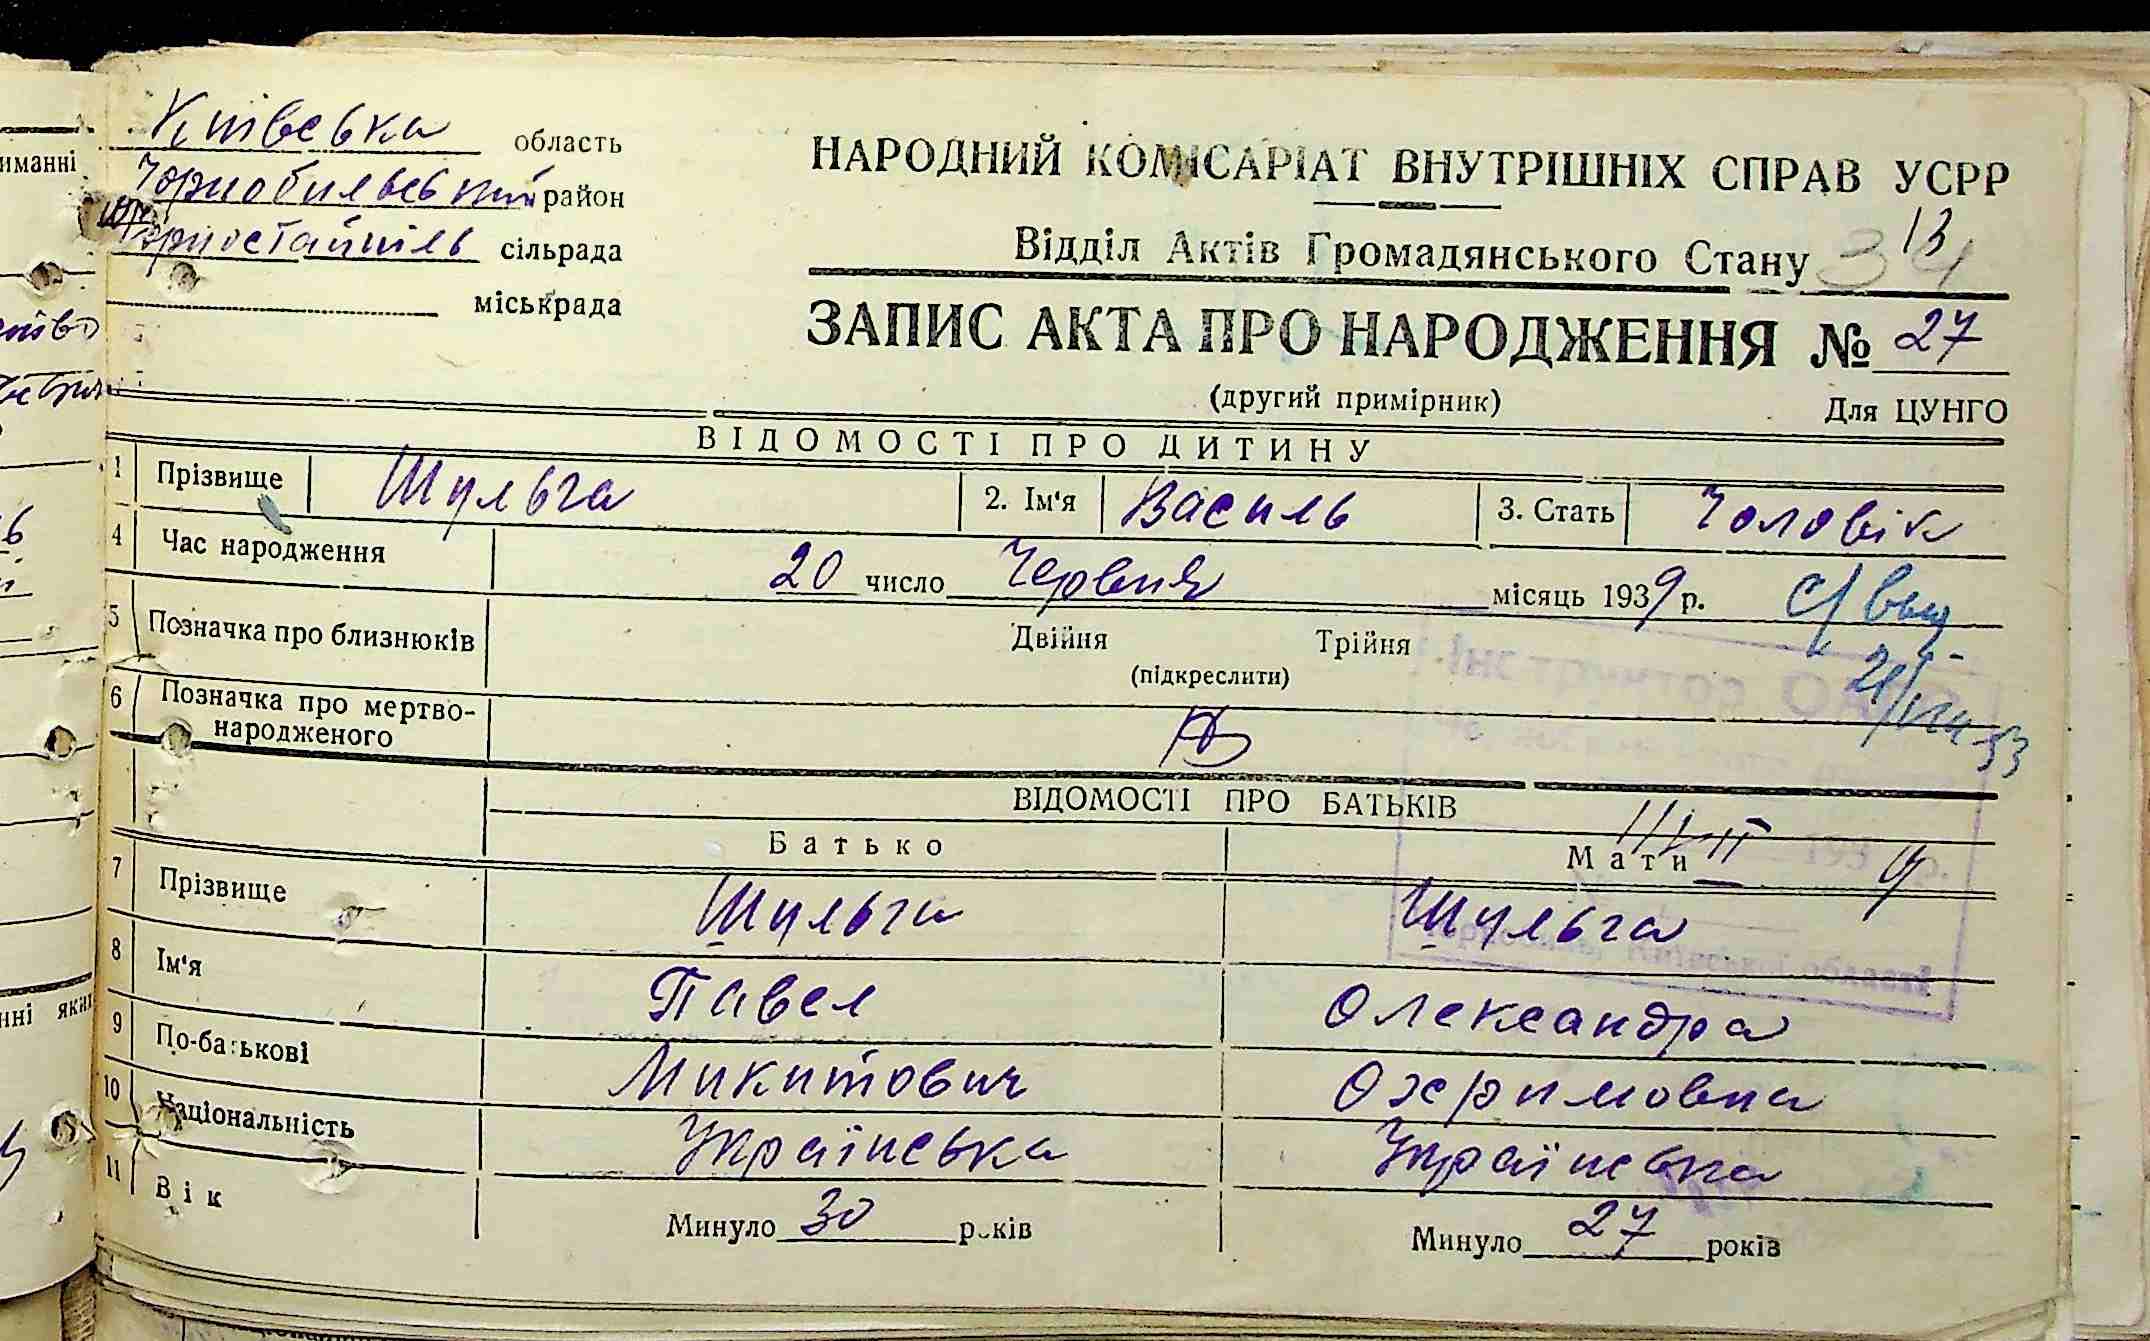 Київська область
Чорнобильський район
Горностайпіль сільрада
міськрада
НАРОДНИЙ КОМІСАРІАТ ВНУТРІШНІХ СПРАВ УСРР
Відділ Актів Громадянського Стану 34 13
ЗАПИС АКТА ПРО НАРОДЖЕННЯ № 27
(другий примірник) Для ЦУНГО
ВІДОМОСТІ ПРО ДИТИНУ
1 Прізвище Шульга 2. Ім'я Василь 3. Стать Чоловік
4 Час народження 20 число Червня місяць 1939 р.
5 Позначка про близнюків Двійня Трійня
(підкреслити)
6 Позначка про мертво-
народженого
Інструктор
ВІДОМОСТІ ПРО БАТЬКІВ
Батько Мати
193 9 р.
7 Прізвище Шульга Шульга
Київської області
8 Ім'я Павел Олександра
9 По-батькові Микитович Охримовна
10 Національність Українська Українська
11 Вік Минуло 30 років Минуло 27 років